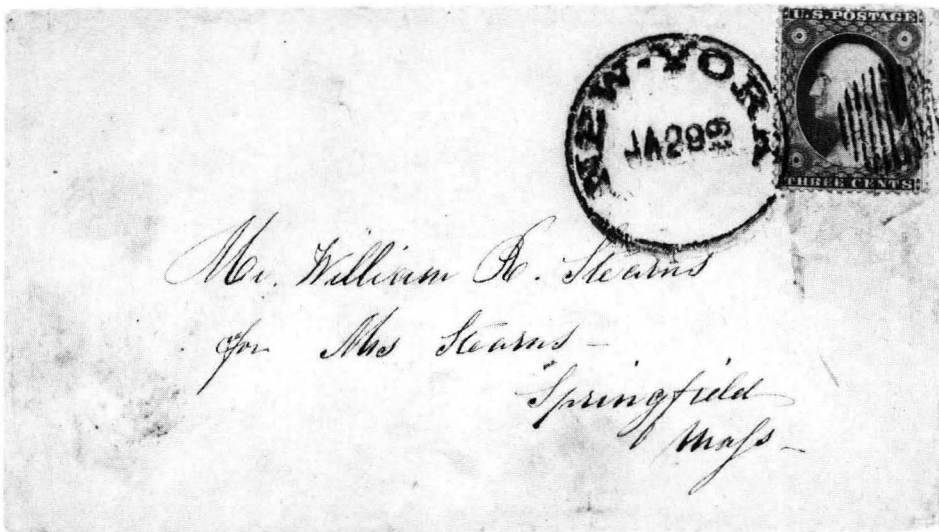 U.S. POSTAGE
THREE CENTS
NEW-YORK
JA 29
Mr. William R. Stearns
for Mrs Stearns —
Springfield
Mass —